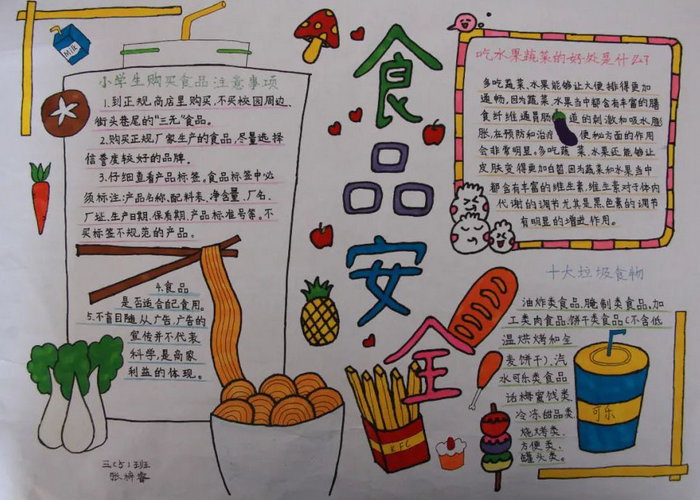 食品安全
小学生购买食品注意事项
1.到正规商店里购买,不买校园周边、
街头巷尾的"三无"食品。
2.购买正规厂家生产的食品,尽量选择
信誉度较好的品牌。
3.仔细查看产品标签。食品标签中必
须标注:产品名称、配料表、净含量、厂名、
厂址、生产日期、保质期、产品标准号等。不
买标签不规范的产品。
4.食品
是否适合自己食用。
5.不盲目随从广告,广告的
宣传并不代表
科学,是商家
利益的体现。
三(5)班
吃水果蔬菜的好处是什么?
多吃蔬菜、水果能够让大便排得更加
通畅,因为蔬菜水果当中都含有丰富的膳
食纤维通胃肠 道的刺激和吸水膨
胀,在预防和治疗 便秘方面的作用
会非常明显。多吃蔬菜水果还能够让
皮肤变得更加白皙因为蔬菜和水果当中
都含有丰富的维生素,维生素对于体内
代谢的调节尤其是黑色素的调节
有明显的增进作用。
十大垃圾食物
油炸类食品,腌制类食品,加
工类肉食品,饼干类食品(不含低
温烘烤和全
麦饼干),汽
水可乐类食品
话梅蜜饯类
冷冻甜品类.
烧烤类.
方便类.
罐头类。
Milk
KFC
可乐